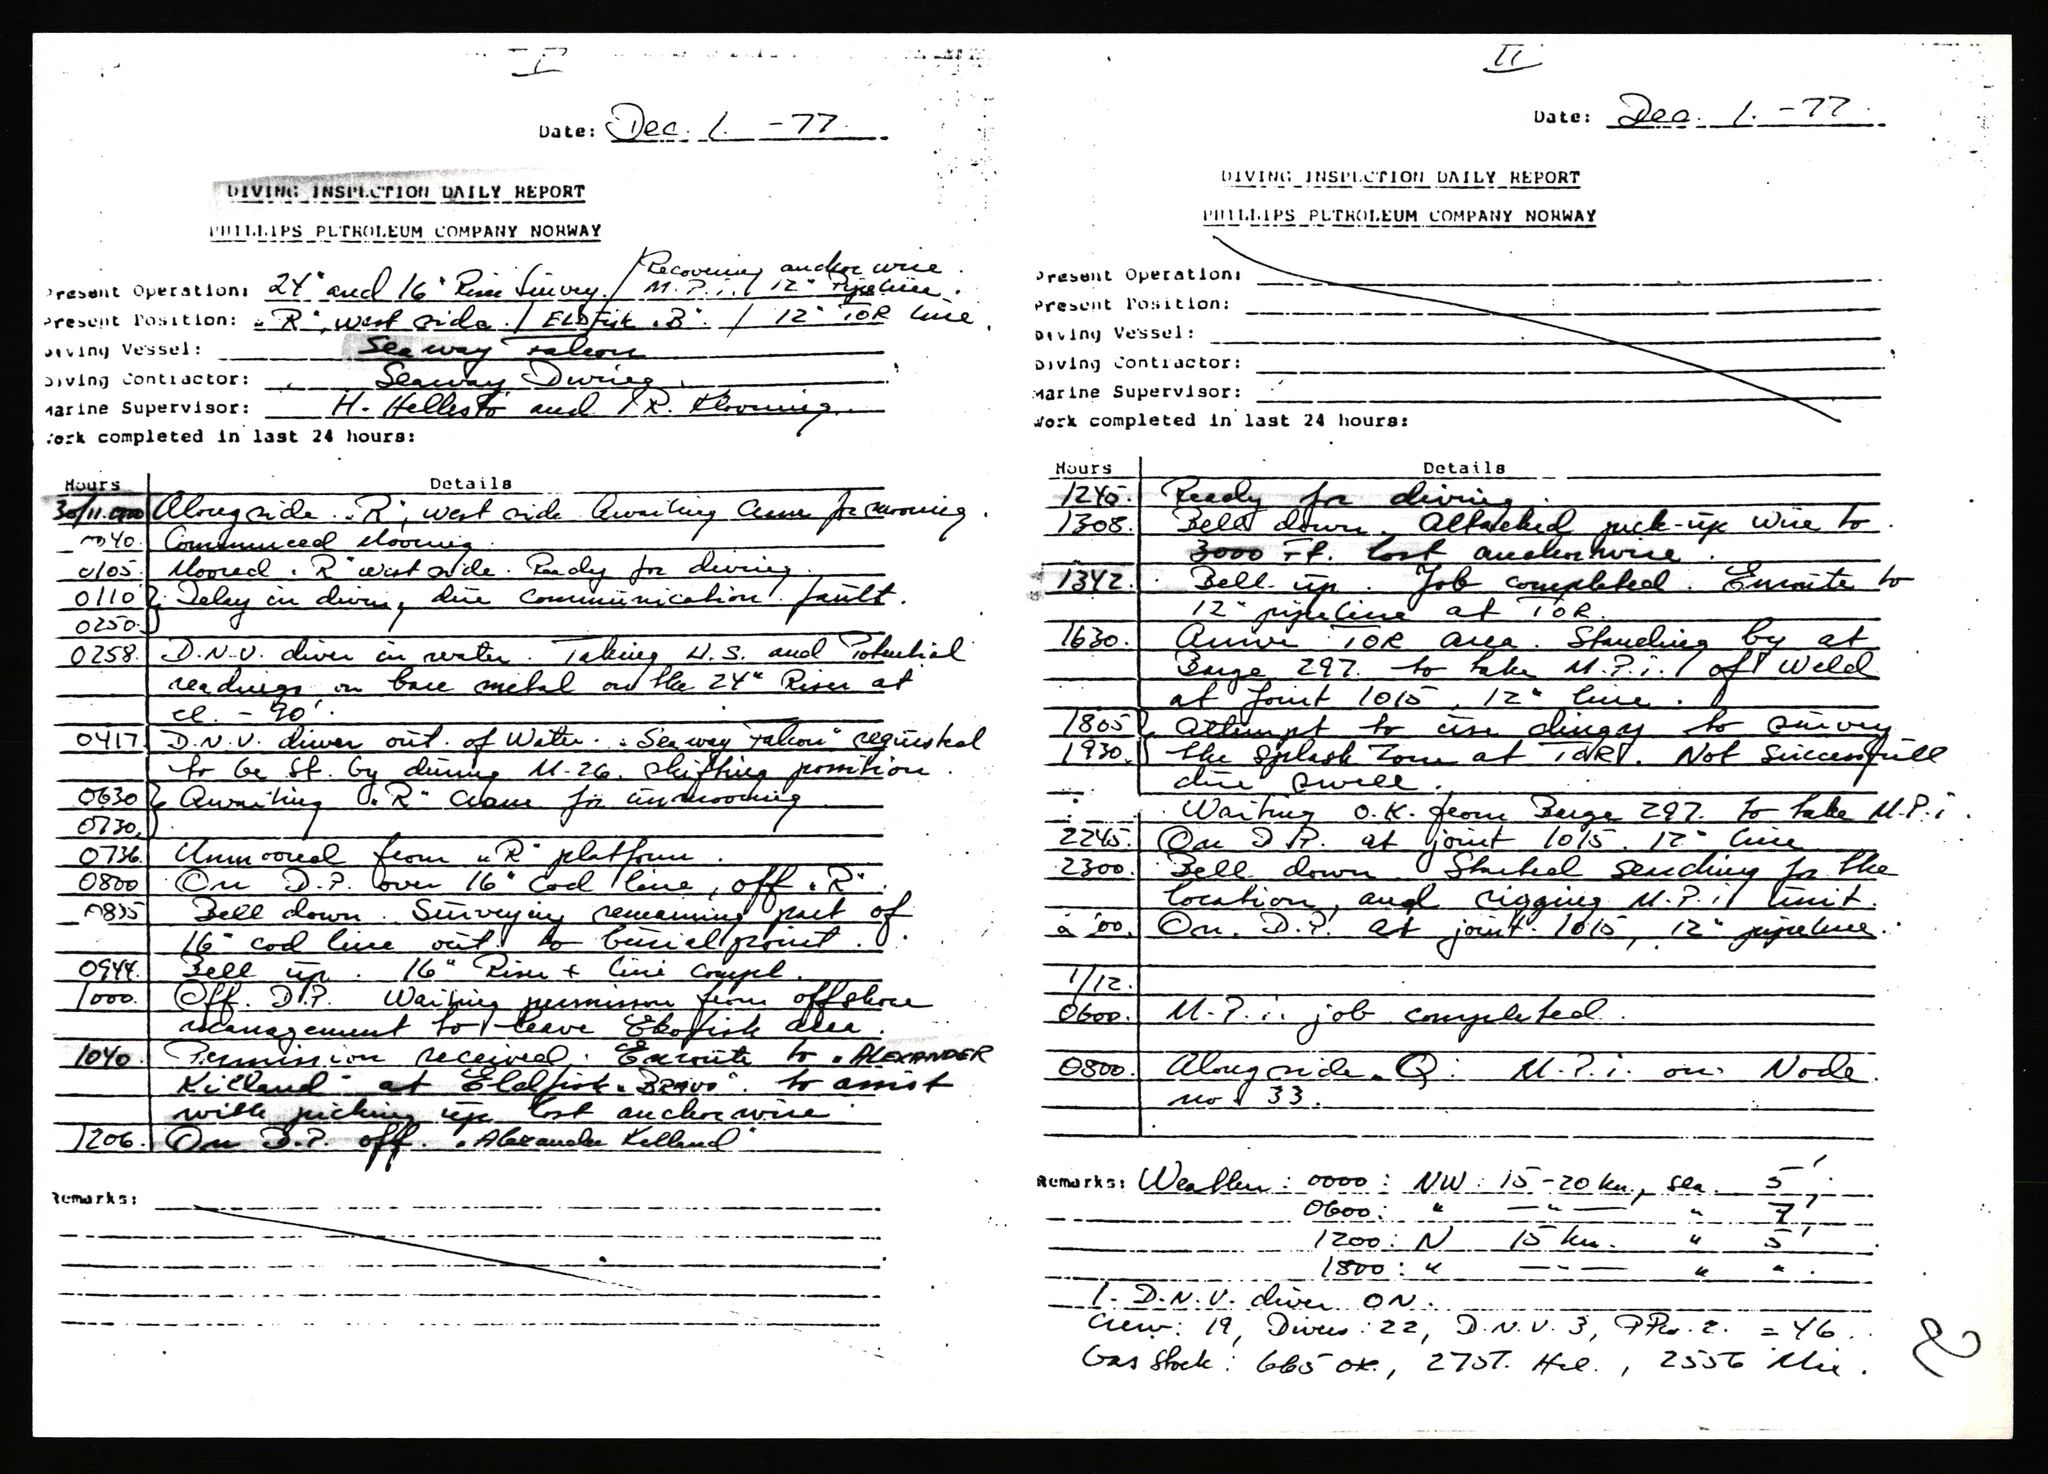 I
Date: Dec. 1. -77.
DIVING INSPECTION DAILY REPORT
PHILLIPS PETROLEUM COMPANY NORWAY
Present Operation: 24" and 16" Riser Survey. / Recovering anchor wire. M.P.i. / 12" Pipeline.
Present Position: "R", west side. / ELDfisk "B". / 12" TOR line.
Diving Vessel: Seaway Falcon
Diving Contractor: Seaway Diving.
Marine Supervisor: H. Hellestø and R.
Work completed in last 24 hours:
Hours Details
30/11. 0000 Alongside "R", west side awaiting crane for mooring.
0040 Commenced mooring.
0105 Moored "R" west side. Ready for diving.
0110 Delay in diving, due communication fault.
0250
0258 D.N.V. diver in water. Taking U.S. and Potential
readings on bare metal on the 24" Riser at
el. - 90'.
0417 D.N.V. diver out of Water. "Seaway Falcon" requested
to be St. by during M-26. shifting position.
0630 Awaiting "R" crane for unmooring
0730.
0736 Unmoored from "R" platform.
0800 On D.P. over 16" cod line, off "R".
0835 Bell down. Surveying remaining part of
16" cod line out to burial point.
0944. Bell up. 16" Riser + line compl.
1000. Off. D.P. Waiting permission from offshore
management to leave Ekofisk area.
1040. Permission received. Enroute to "ALEXANDER
Killand" at Eldfisk "BRAVO". to assist
with picking up lost anchor wire
1206. On D.P. off. "Alexander Kelland"
Remarks:
II
Date: Dec. 1. -77.
DIVING INSPECTION DAILY REPORT
PHILLIPS PETROLEUM COMPANY NORWAY
Present Operation:
Present Position:
Diving Vessel:
Diving Contractor:
Marine Supervisor:
Work completed in last 24 hours:
Hours Details
1245. Ready for diving.
1308. Bell down. Attached pick-up wire to
3000 Ft. lost anchorwire.
1342. Bell up. Job completed. Enroute to
12" pipeline at TOR.
1630. Arrive TOR area. Standing by at
Barge 297. to take M.P.i. of Weld
at joint 1015, 12" line.
1805 Attempt to use dingy to survey
1930. the splash zone at TOR. Not Successfull
due swell.
Waiting O.K. from Barge 297. to take M.P.i.
2245. On D.P. at joint 1015. 12" line
2300. Bell down. Started searching for the
location, and rigging M.P.i. unit.
On. D.P. at joint 1015, 12" pipeline.
1/12.
0600. M.P.i. job completed.
0800. Alongside Q. M.P.i. on Node
no. 33.
Remarks: Weather: 0000: NW. 15-20 kn., sea. 5'.
0600: " — " — " 7'
1200: N 15 kn. " 5'
1800: " — - — " ".
1. D.N.V. diver ON.
Crew: 19, Divers: 22, D.N.V. 3, 2. = 46.
Gas Stock: 665 OX., Hel., 2556 Mix.